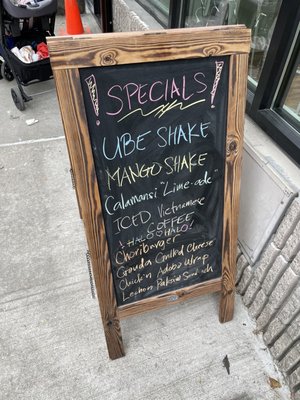 ! SPECIALS !
UBE SHAKE
MANGO SHAKE
Calamansi "Lime-ade"
ICED Vietnamese
COFFEE
! HALO HALO!
Choriburger
Gouda Grilled Cheese
Chick'n Adobo Wrap
Lechon Paksiw Sandwich